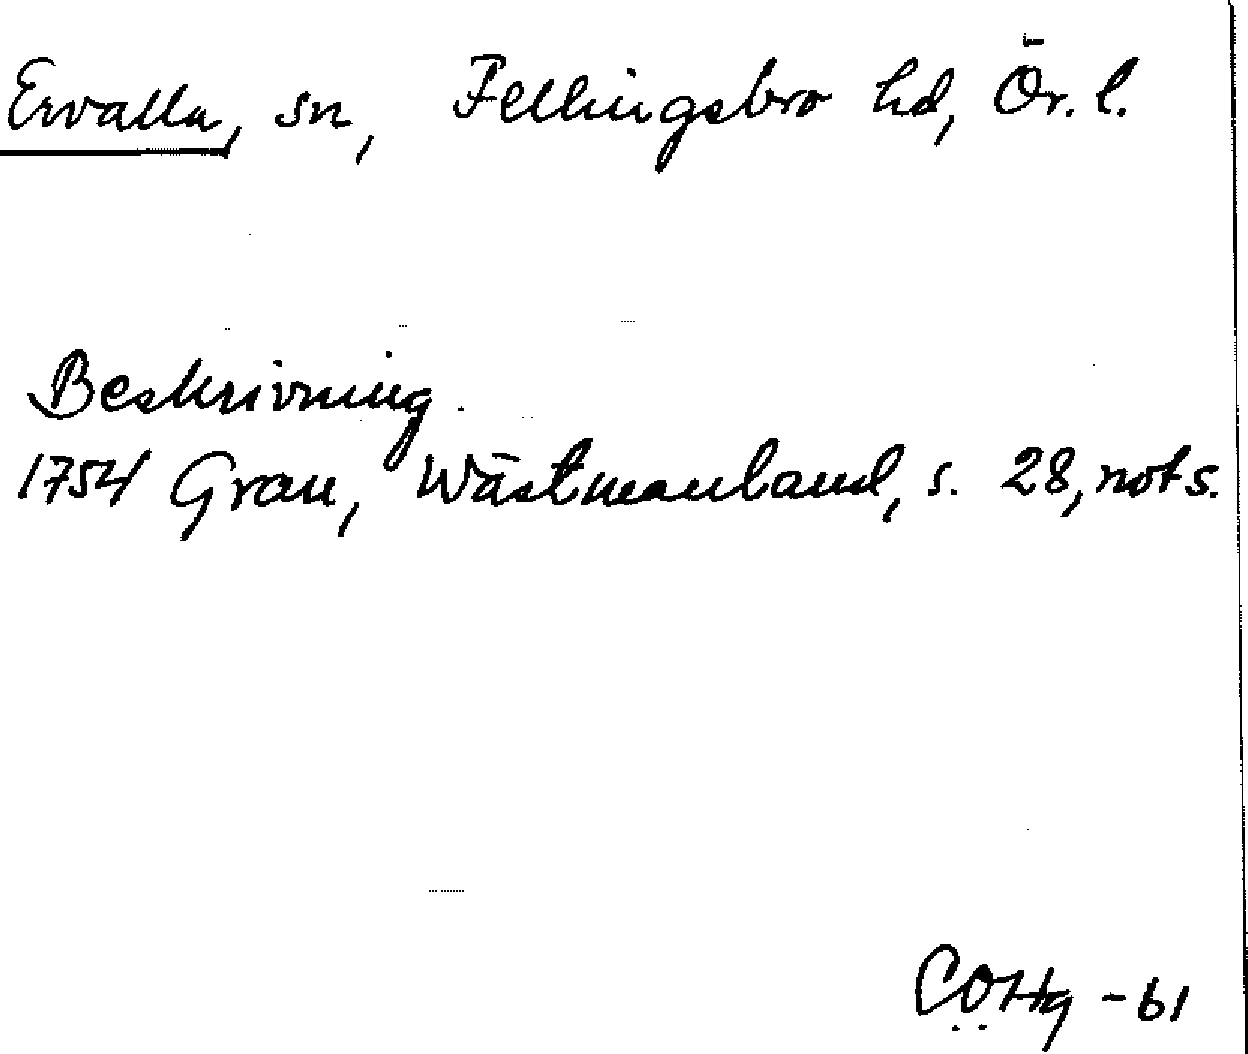 Ervalla, sn, Fellingsbro hd, Ör. l.
Beskrivning.
1754 Grau, Wästmanland, s. 28, not s.
CÖHg -61